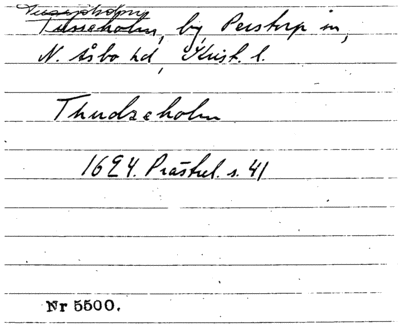 Tusseholm, by, Perstorp sn,
N. Åsbo hd, Krist. l.
Thudzeholm
1624. Prästrel. s. 41
Nr 5500.